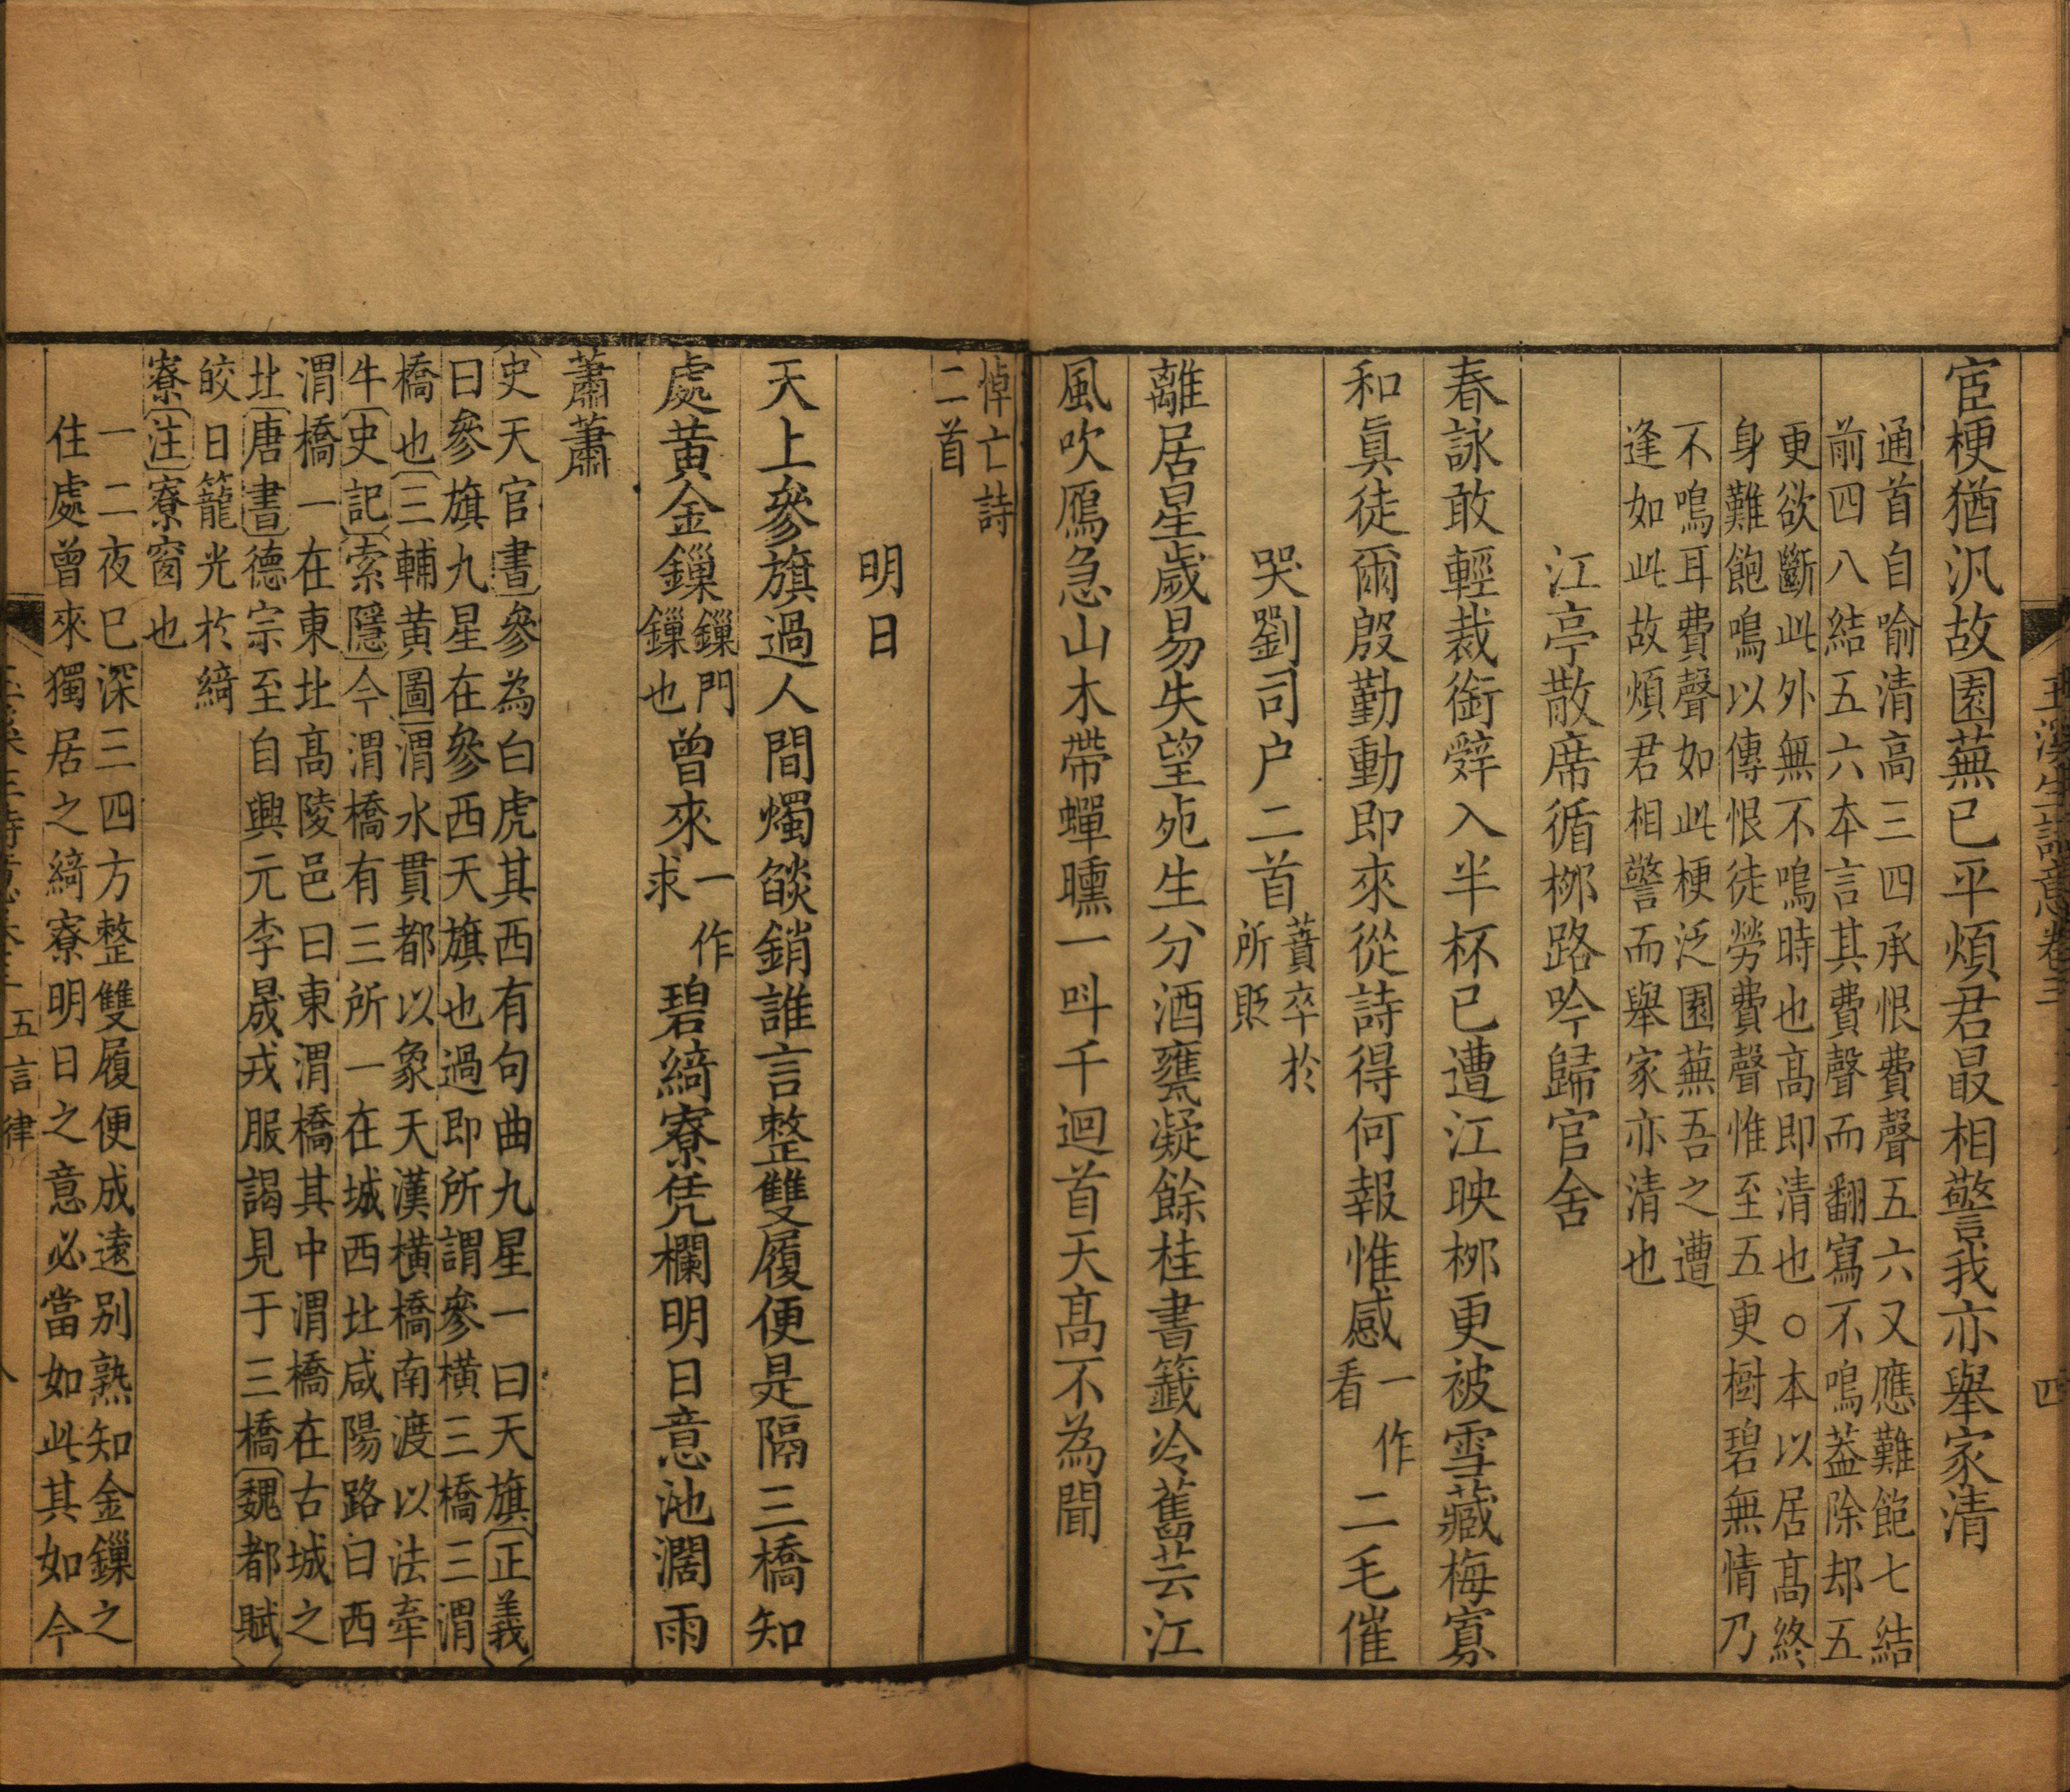 玉溪生詩意卷三
四
宦梗猶汎故園蕪已平煩君最相警我亦舉家清
通首自喻清高三四承恨費聲五六又應難飽七結
前四八結五六本言其費聲而翻寫不鳴蓋除却五
更欲斷此外無不鳴時也高即清也○本以居高終
身難飽鳴以傳恨徒勞費聲惟至五更樹碧無情乃
不鳴耳費聲如此梗泛園蕪吾之遭
逢如此故煩君相警而舉家亦清也
江亭散席循栁路吟歸官舍
春詠敢輕裁銜辤入半杯已遭江映栁更被雪藏梅寡
和眞徒爾殷勤動即來從詩得何報惟感一作看二毛催
哭劉司户二首蕡卒於所貶
離居星歲易失望死生分酒甕凝餘桂書籤冷舊芸江
風吹鴈急山木帶蟬曛一呌千迴首天高不為聞
悼亡詩
二首
明日
天上參旗過人間燭燄銷誰言整雙履便是隔三橋知
處黄金鏁鏁門鏁也曾來一作求碧綺寮凭欄明日意池濶雨
蕭蕭
史天官書參為白虎其西有句曲九星一曰天旗正義
曰參旗九星在參西天旗也過即所謂參橫三橋三渭
橋也三輔黄圖渭水貫都以象天漢橫橋南渡以法牽
牛史記索隱今渭橋有三所一在城西北咸陽路曰西
渭橋一在東北高陵邑曰東渭橋其中渭橋在古城之
北唐書德宗至自興元李晟戎服謁見于三橋魏都賦
皎日籠光於綺
寮注寮窗也
一二夜已深三四方整雙履便成遠別熟知金鏁之
住處曾來獨居之綺寮明日之意必當如此其如今
五言律